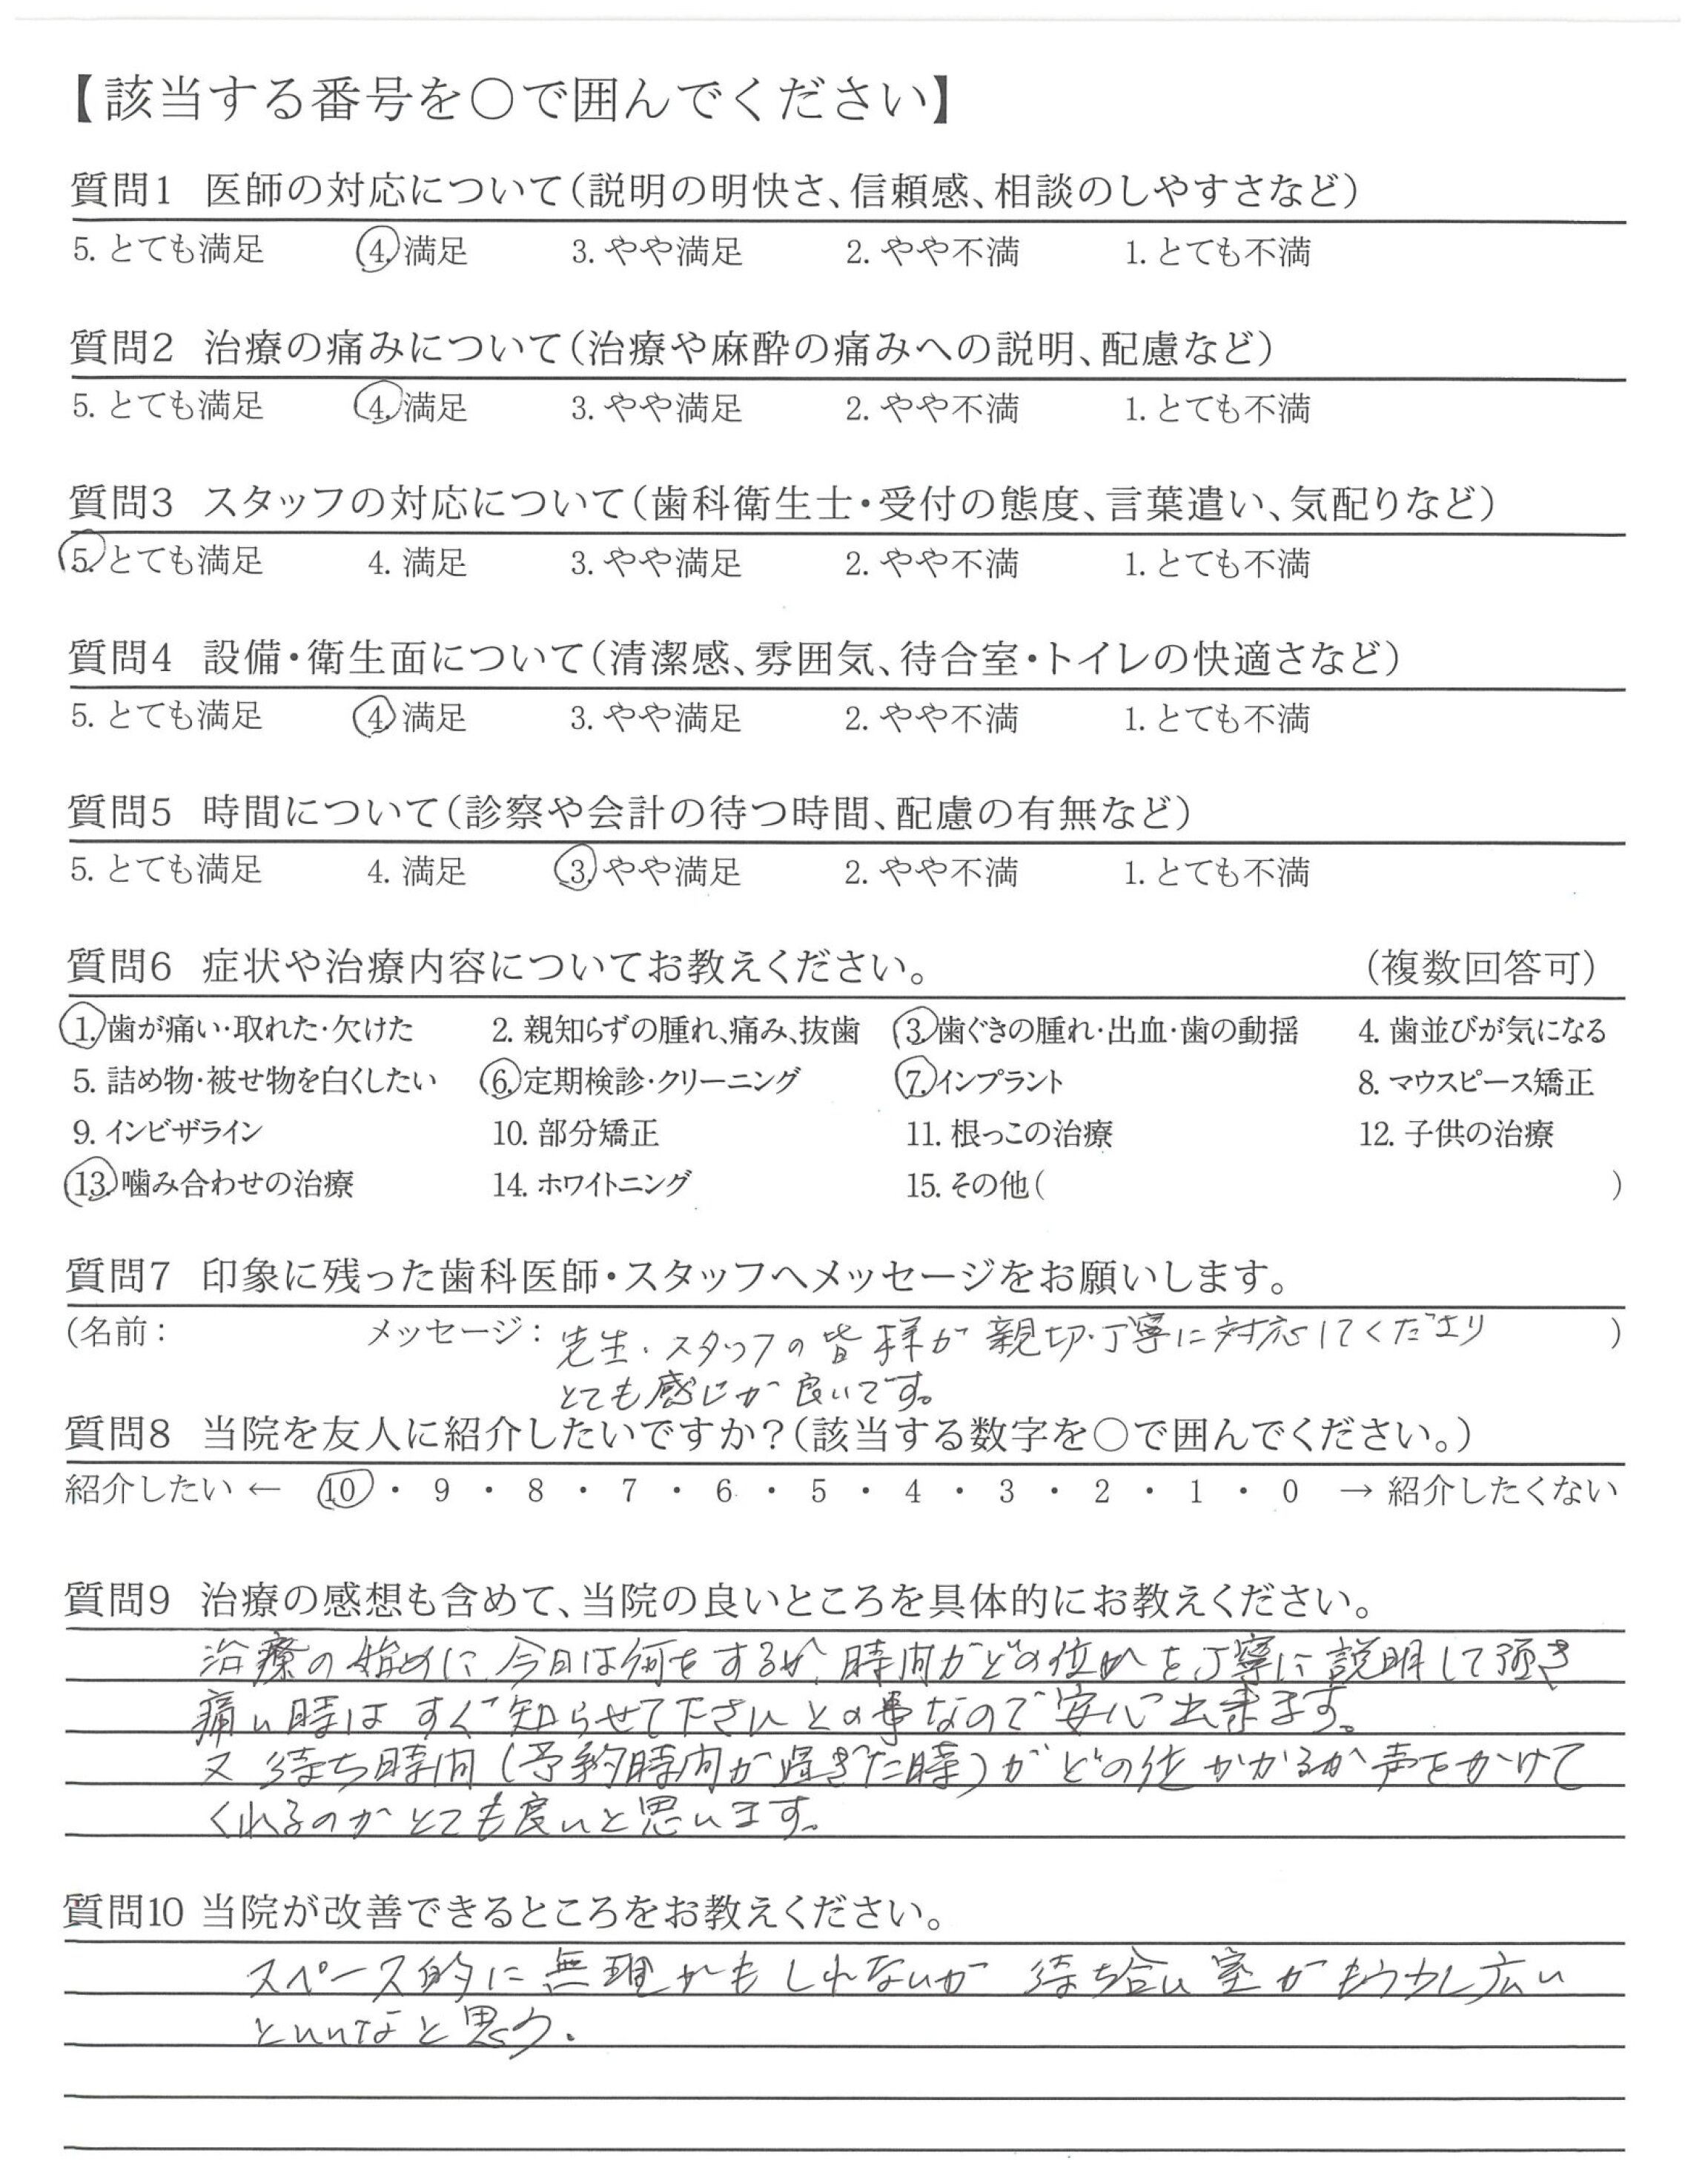 【該当する番号を○で囲んでください】
質問1 医師の対応について(説明の明快さ、信頼感、相談のしやすさなど)
5. とても満足 4. 満足 3. やや満足 2. やや不満 1. とても不満
質問2 治療の痛みについて(治療や麻酔の痛みへの説明、配慮など)
5. とても満足 4. 満足 3. やや満足 2. やや不満 1. とても不満
質問3 スタッフの対応について(歯科衛生士・受付の態度、言葉遣い、気配りなど)
5. とても満足 4. 満足 3. やや満足 2. やや不満 1. とても不満
質問4 設備・衛生面について(清潔感、雰囲気、待合室・トイレの快適さなど)
5. とても満足 4. 満足 3. やや満足 2. やや不満 1. とても不満
質問5 時間について(診察や会計の待つ時間、配慮の有無など)
5. とても満足 4. 満足 3. やや満足 2. やや不満 1. とても不満
質問6 症状や治療内容についてお教えください。 (複数回答可)
1. 歯が痛い・取れた・欠けた 2. 親知らずの腫れ、痛み、抜歯 3. 歯ぐきの腫れ・出血・歯の動揺 4. 歯並びが気になる
5. 詰め物・被せ物を白くしたい 6. 定期検診・クリーニング 7. インプラント 8. マウスピース矯正
9. インビザライン 10. 部分矯正 11. 根っこの治療 12. 子供の治療
13. 噛み合わせの治療 14. ホワイトニング 15. その他( )
質問7 印象に残った歯科医師・スタッフへメッセージをお願いします。
(名前: メッセージ: 先生・スタッフの皆様が親切・丁寧に対応してくださり )
とても感じが良いです。
質問8 当院を友人に紹介したいですか?(該当する数字を○で囲んでください。)
紹介したい ← 10 ・ 9 ・ 8 ・ 7 ・ 6 ・ 5 ・ 4 ・ 3 ・ 2 ・ 1 ・ 0 → 紹介したくない
質問9 治療の感想も含めて、当院の良いところを具体的にお教えください。
治療の始めに今日は何をするか、時間がどの位かを丁寧に説明して頂き
痛い時はすぐ知らせて下さいとの事なので安心出来ます。
又 待ち時間(予約時間が過ぎた時)がどの位かかるか声をかけて
くれるのがとても良いと思います。
質問10 当院が改善できるところをお教えください。
スペース的に無理かもしれないが 待ち合い室がもう少し広い
といいなと思う.